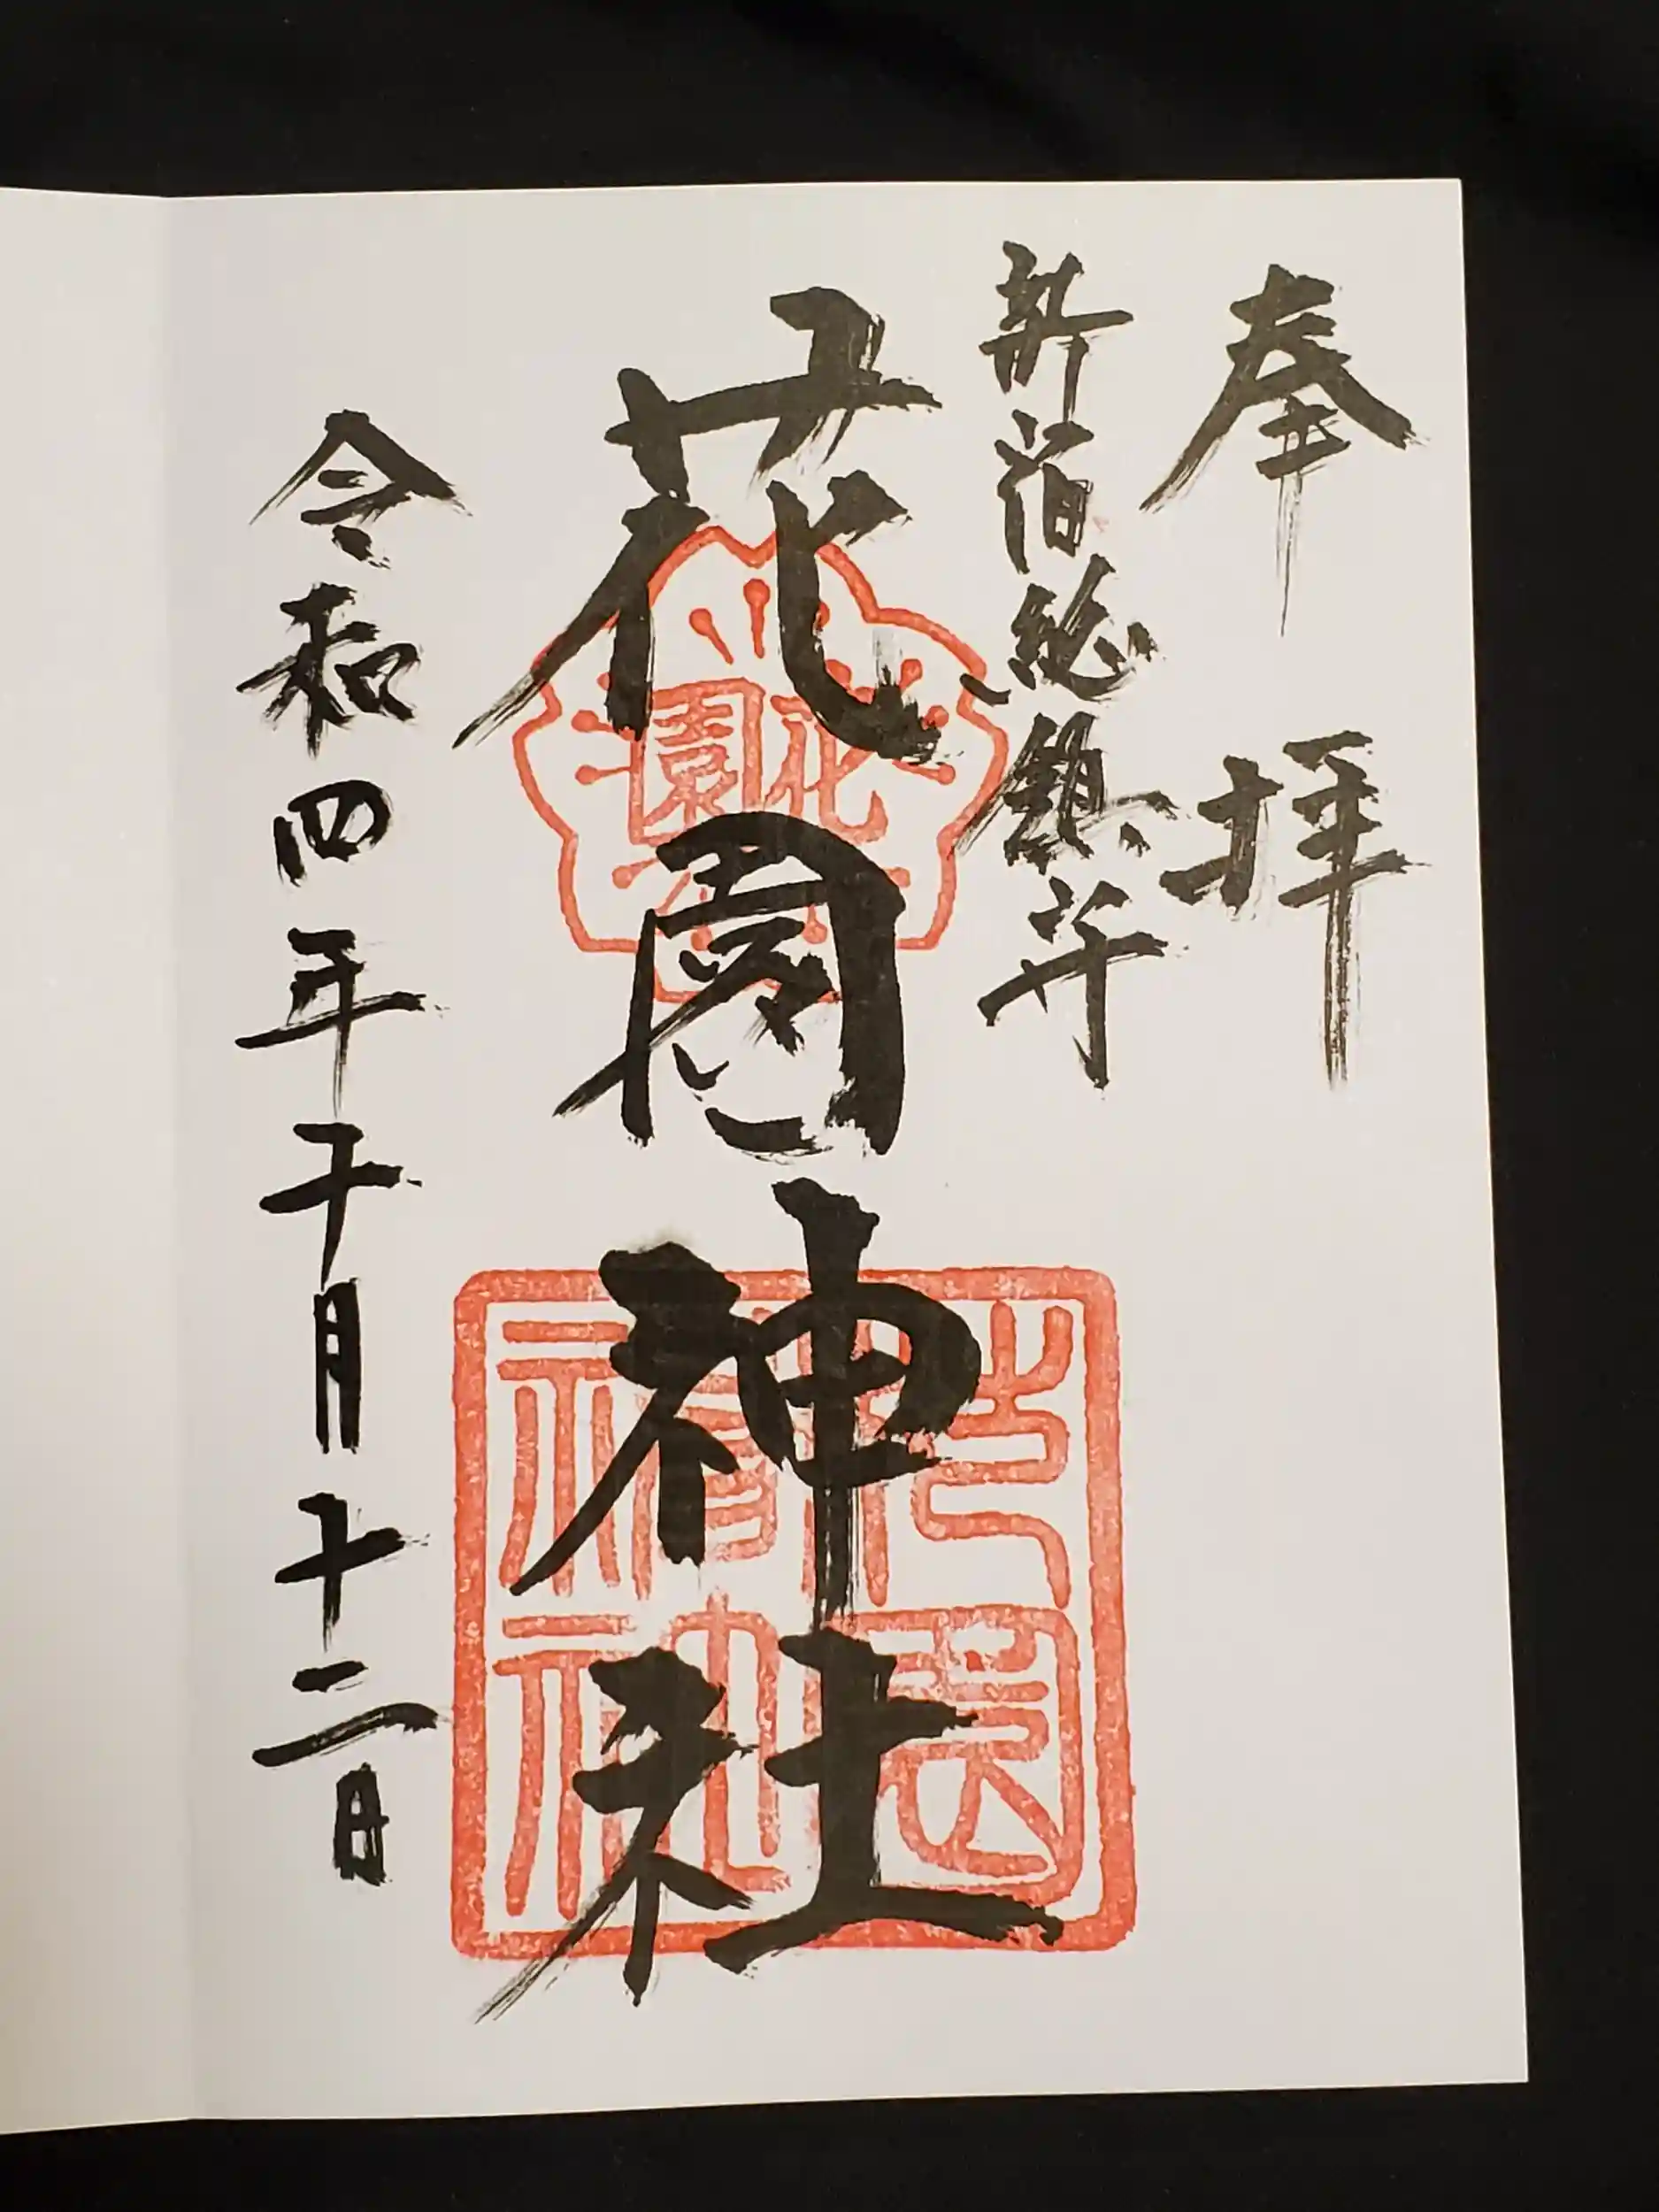 奉拝
新宿総鎮守
花園神社
令和四年十月十二日
花園
花園神社